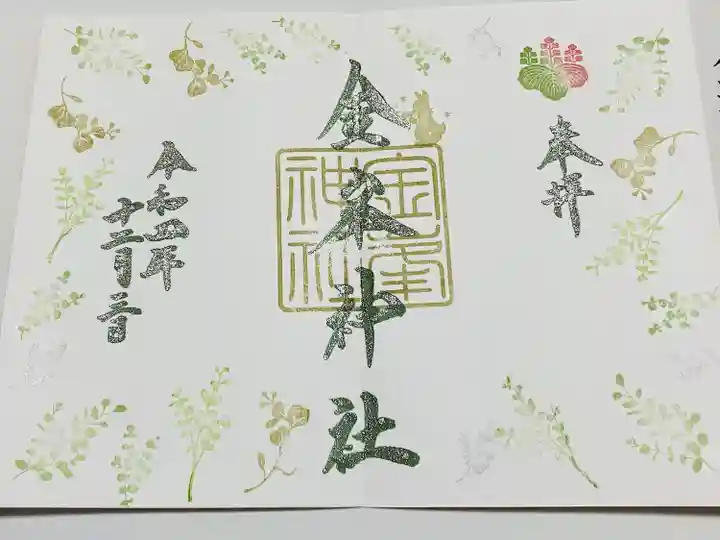 奉拝
金峯神社
金峯
神社
令和四年
十二月